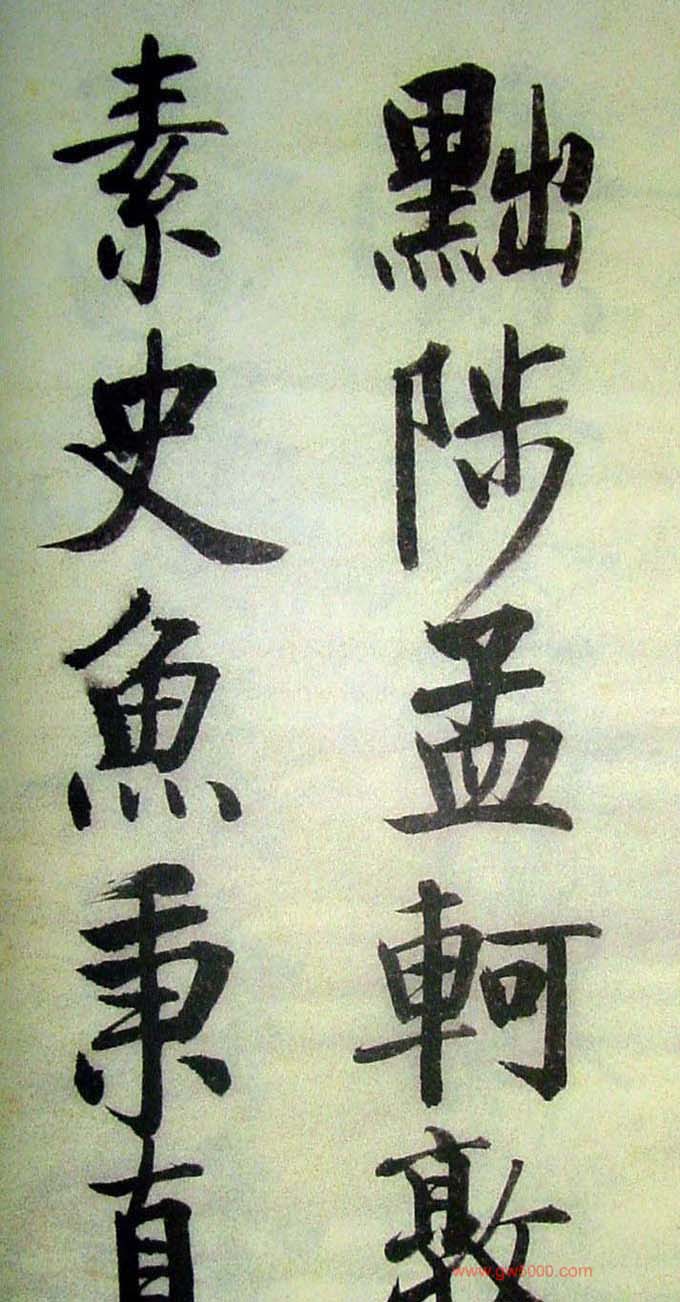 黜陟孟軻敦
素史魚秉直
www.gw5000.com